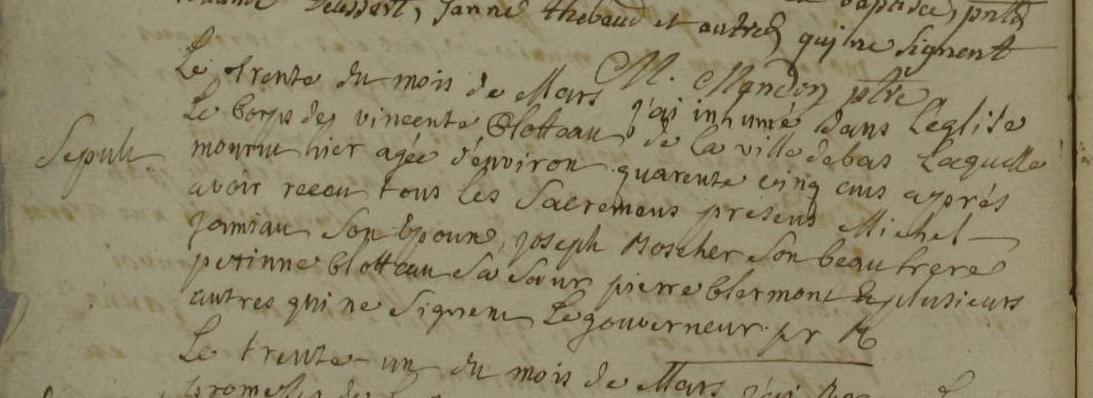 Deussart, Janne Thebaud et autres qui ne signent
M. Mandon ptre
Le trente du mois de Mars j'ai inhumé dans l'eglise
Le Corps de vincente Blotteau de la ville debas Laquelle
Sepult.
mourut hier agée d'environ quarente cinq ans aprés
avoir receu tous les Sacremens présens Michel
Jamiau Son Epoux, joseph Boscher Son beau frere
perinne blotteau Sa Sœur pierre blermont & plusieurs
autres qui ne Signent Le gouverneur pr R
Le trente-un du mois de Mars j'ai
promesses de